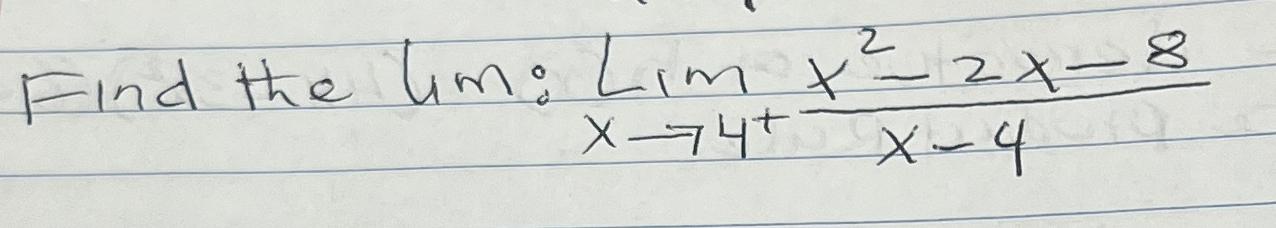 Find the lim: Lim x² - 2x - 8
x → 4⁺ x - 4